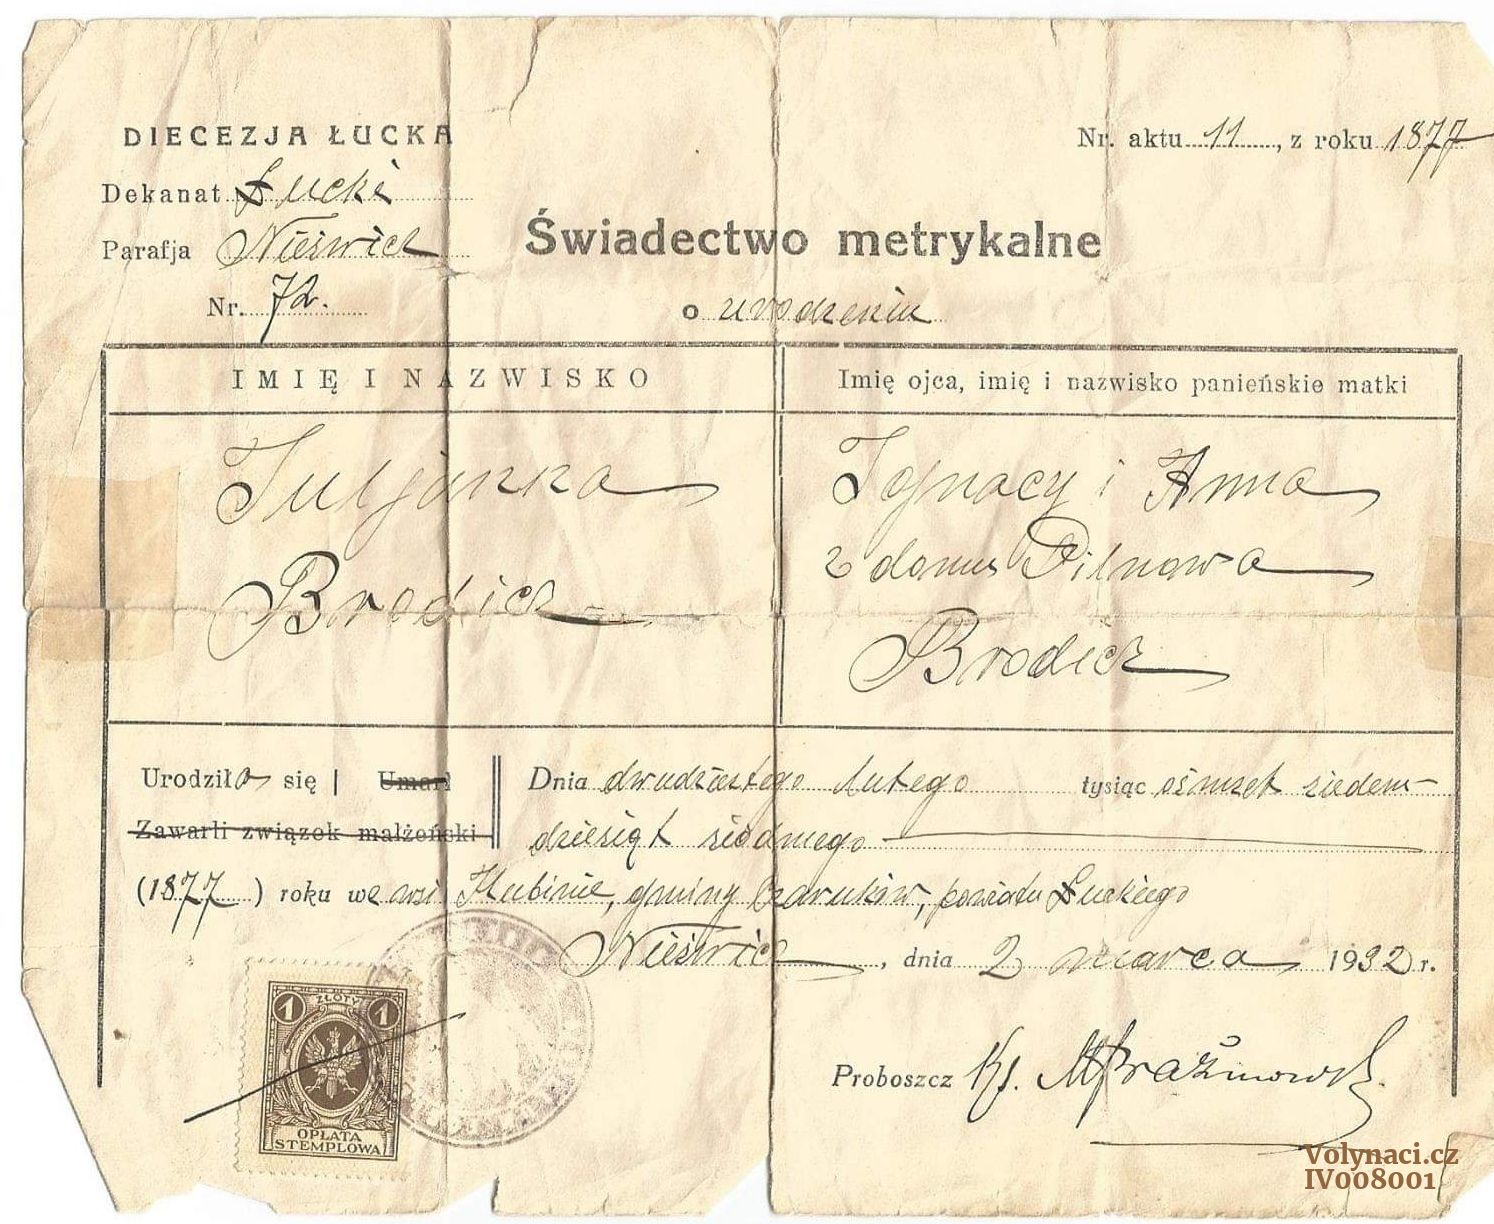 DIECEZJA ŁUCKA
Nr. aktu 11, z roku 1877
Dekanat Łucki
Parafja Nieświcz
Nr. 72.
Świadectwo metrykalne
o urodzeniu
IMIĘ I NAZWISKO
Imię ojca, imię i nazwisko panieńskie matki
Juljanna
Brodicz
Ignacy i Anna
z domu Pilnowa
Brodicz
Urodziła się | Umarł
Zawarli związek małżeński
Dnia dwudziestego lutego tysiąc ośmset siedem-
dziesiąt siódmego
(1877) roku we wsi Hubinie, gminy Czaruków, powiatu Łuckiego
Nieświcz, dnia 2 marca 1932 r.
Proboszcz Ks.
1 ZŁOTY 1
OPŁATA
STEMPLOWA
Volynaci.cz
IV008001